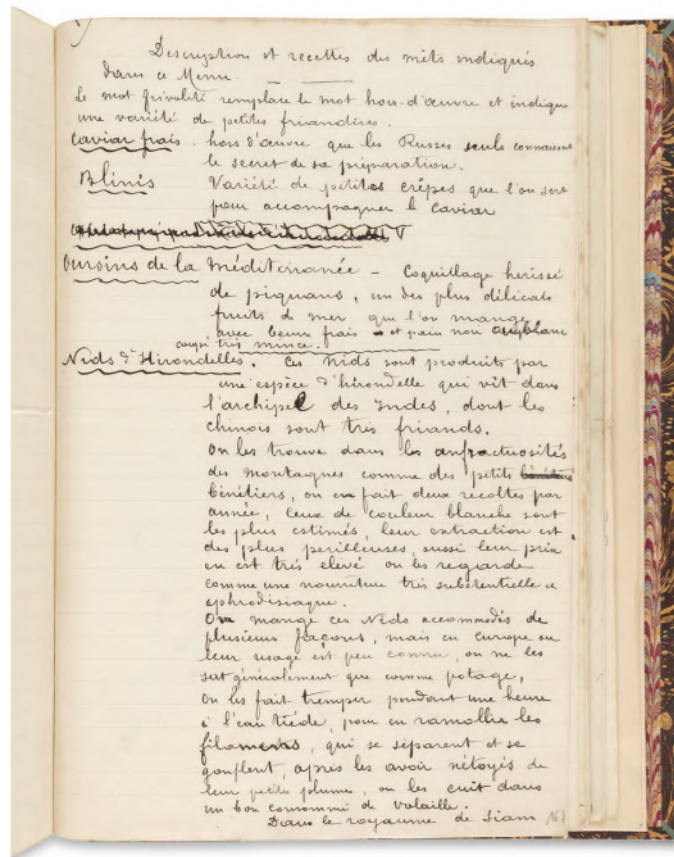 Description et recettes des mets indiqués
dans ce Menu.
Le mot frivolité remplace le mot hors-d'œuvre et indique
une variété de petites friandises.
Caviar frais. hors d'œuvre que les Russes seuls connaissent
le secret de sa préparation.
Blinis Variété de petites crêpes que l'on sert
pour accompagner le Caviar
Oursins de la Méditerranée - Coquillage herissé
de piquans, un des plus délicats
fruits de mer que l'on mange
avec beurre frais et pain noir ou blanc
coupé très mince.
Nids d'Hirondelles. Ces nids sont produits par
une espèce d'hirondelle qui vit dans
l'archipel des Indes, dont les
chinois sont très friands.
On les trouve dans les anfractuosités
des montagnes comme des petits
bénétiers, on en fait deux récoltes par
année, ceux de couleur blanche sont
les plus estimés, leur extraction est
des plus perilleuses, aussi leur prix
en est très elévé on les regarde
comme une nourriture très substentielle e
aphrodisiaque.
On mange ces Nids accommodés de
plusieurs façons, mais en Europe ou
leur usage est peu connu, on ne les
sert généralement que comme potage,
On les fait tremper pendant une heure
à l'eau tiéde, pour en ramollir les
filaments, qui se séparent et se
gonflent, après les avoir nétoyés de
leur petites plumes, on les cuit dans
un bon consommé de volaille.
Dans le royaume de Siam